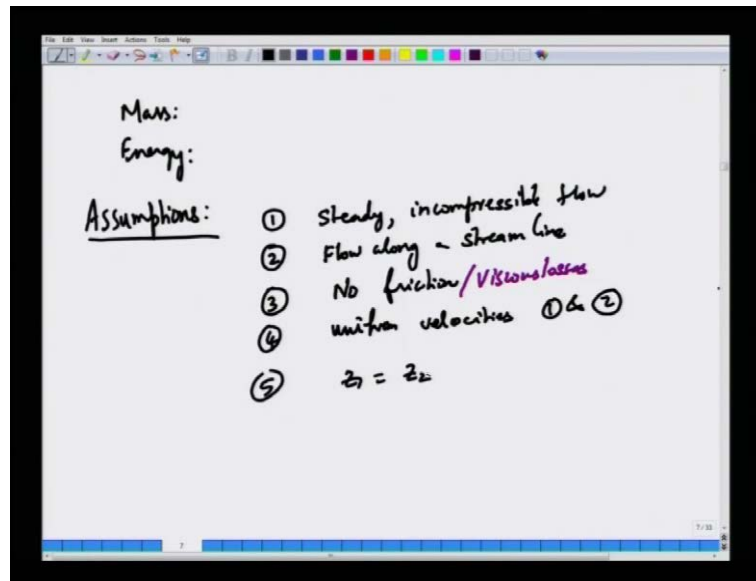 File Edit View Insert Actions Tools Help
B I
Mass:
Energy:
Assumptions:
① Steady, incompressible flow
② Flow along a stream line
③ No friction/Viscous losses
④ uniform velocities ① & ②
⑤ z₁ = z₂
7/10
7